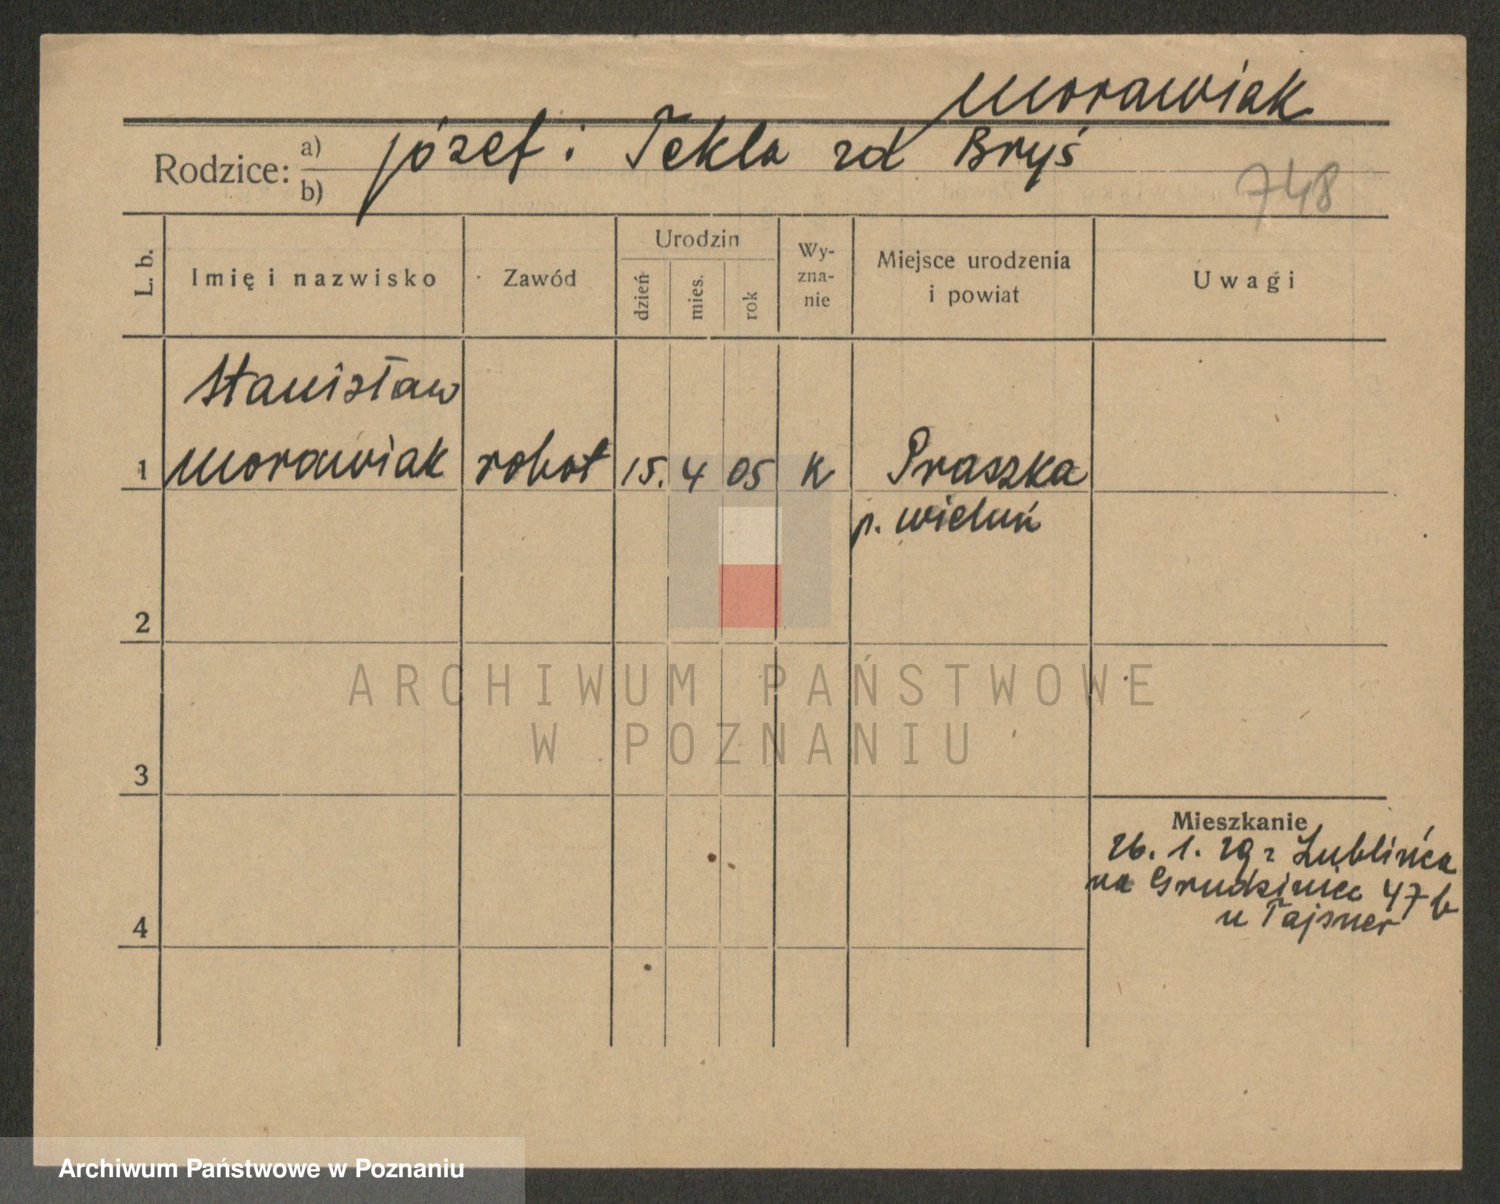 Morawiak
Rodzice: a) Józef i Tekla zd Bryś
b)
748
L. b.
Imię i nazwisko
Zawód
Urodzin
dzień
mies.
rok
Wy-
zna-
nie
Miejsce urodzenia
i powiat
Uwagi
Stanisław
1 Morawiak robot 15. 4 05 K Praszka
p. Wieluń
2
ARCHIWUM PAŃSTWOWE
W POZNANIU
3
Mieszkanie
26. 1. 29 z Lublińca
na Grudzieniec 47b
u Tajsner
4
Archiwum Państwowe w Poznaniu